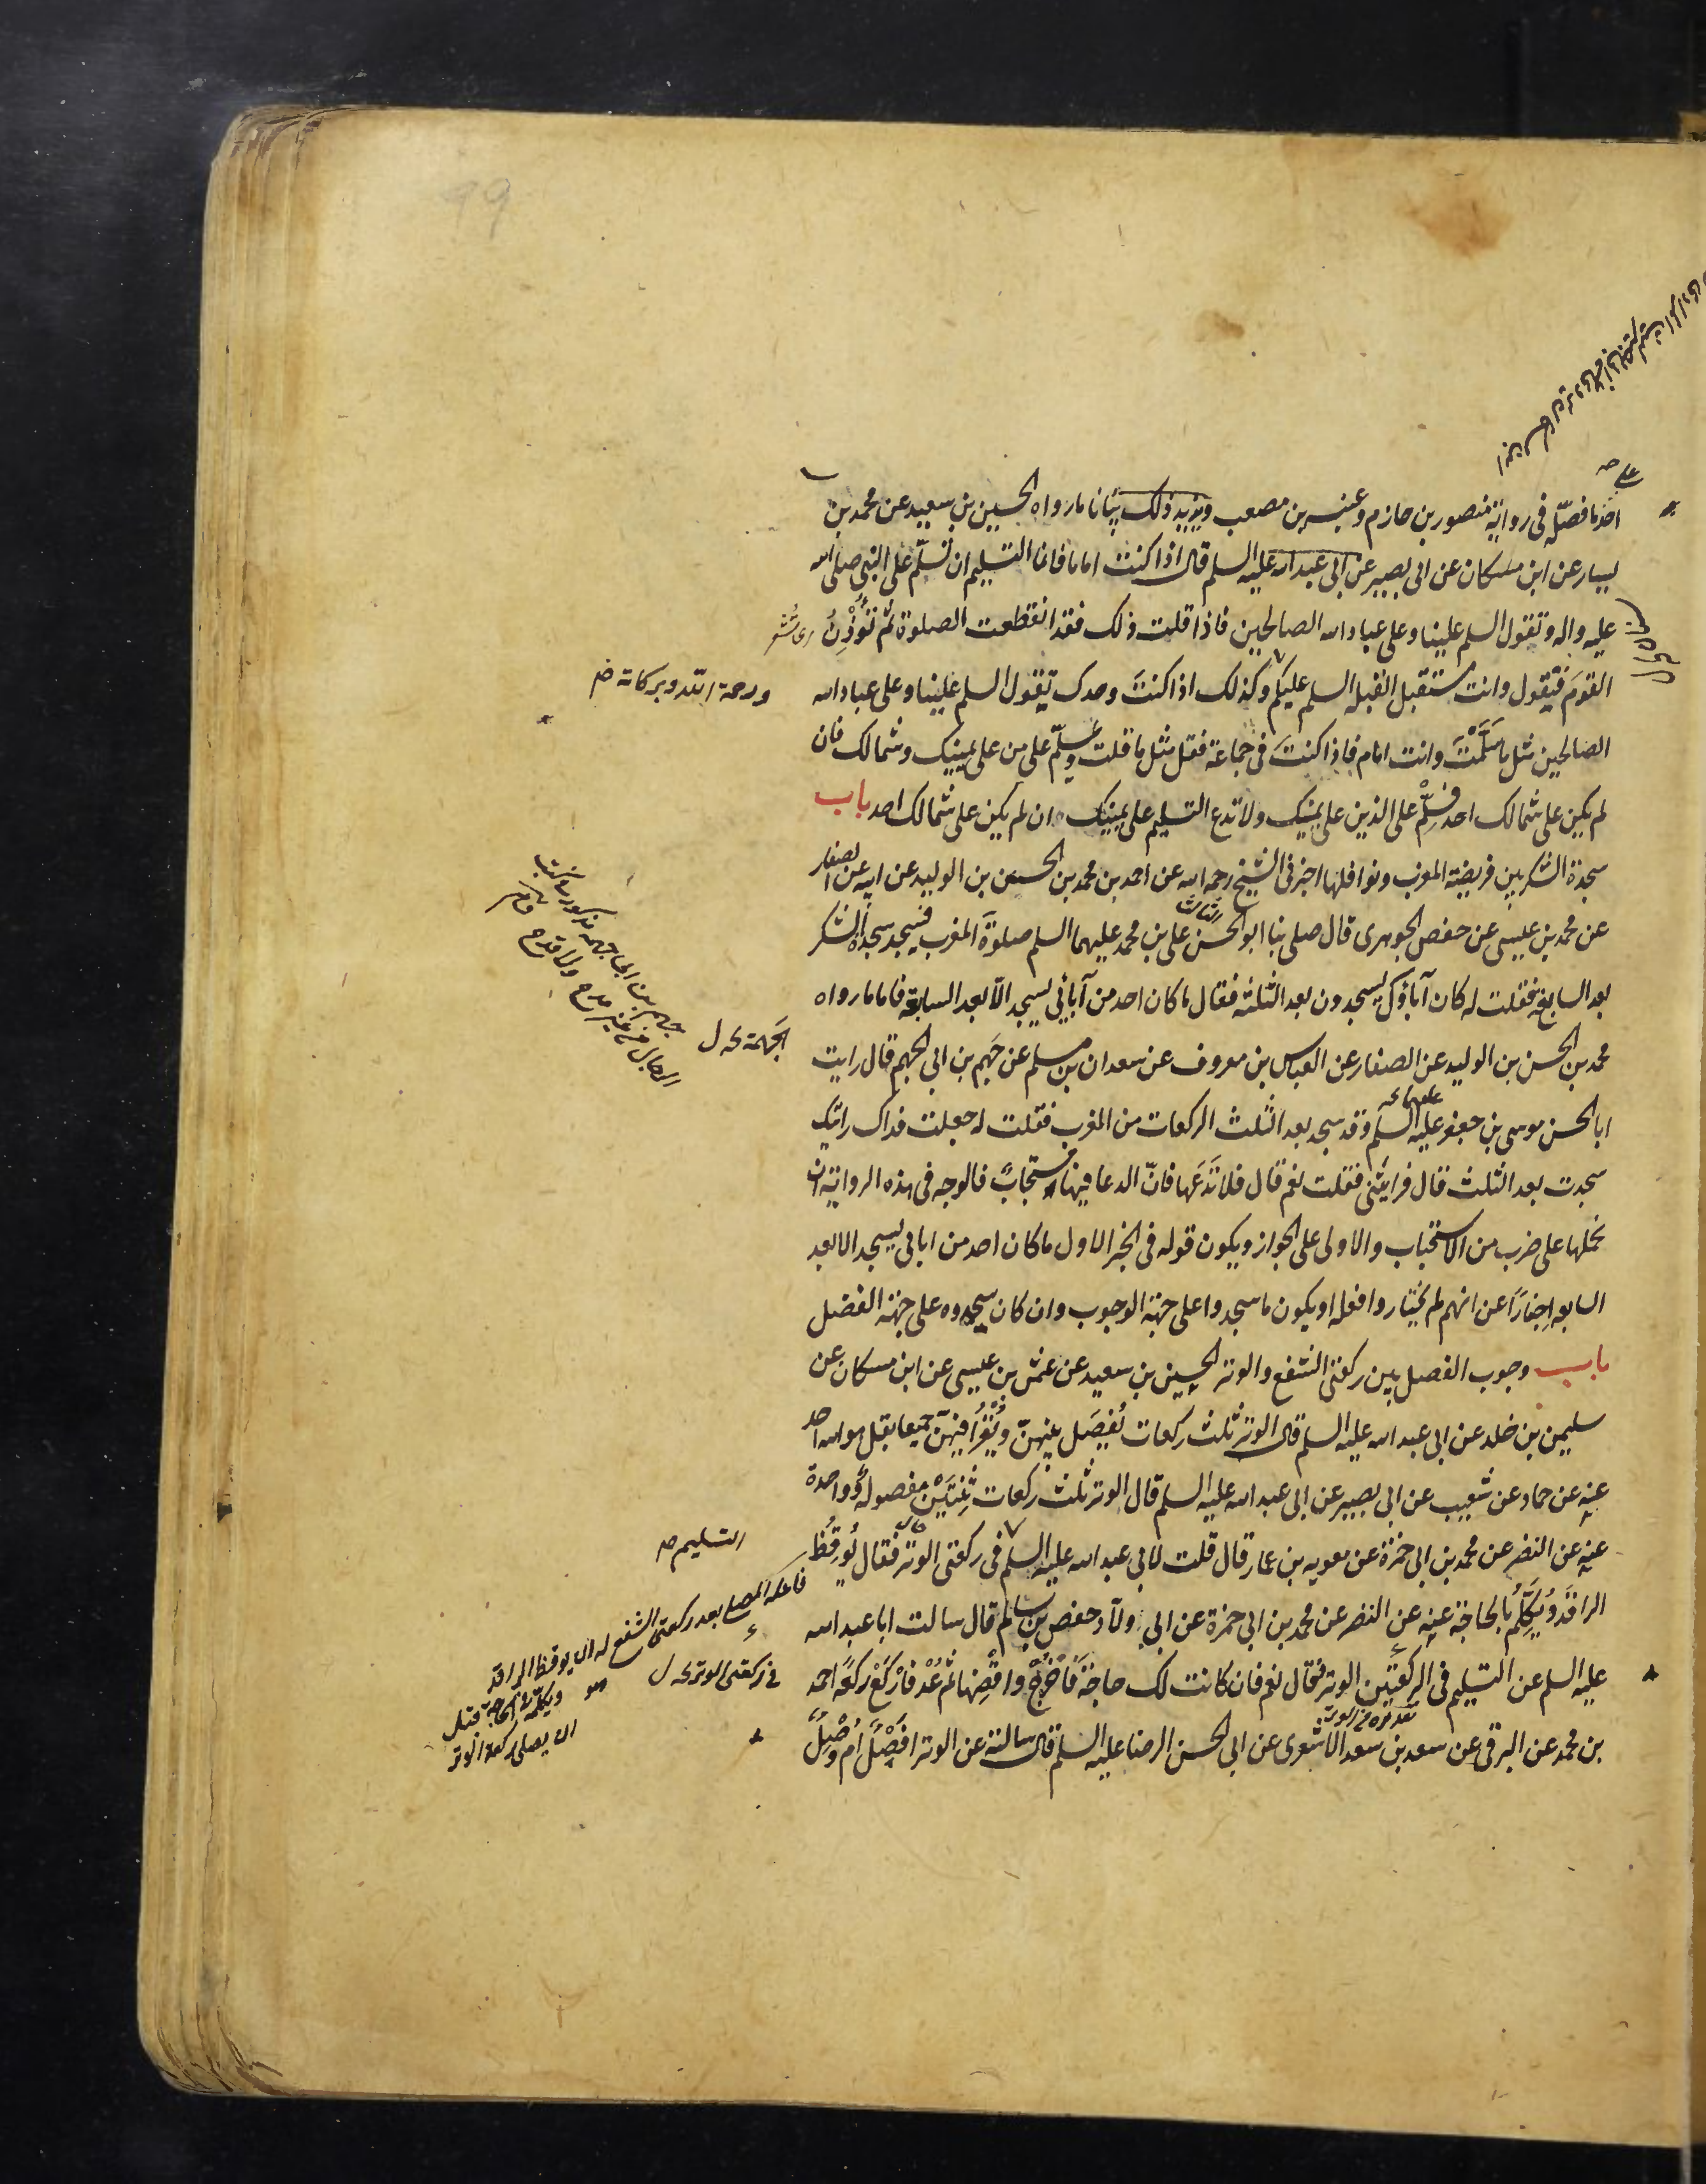 احد ما فصّله فى رواية منصور بن حازم وعنبسه بن مصعب ويزيد ذلك بيانا ما رواه الحسين بن سعيد عن محمد بن
يسار عن ابن مسكان عن ابى بصير عن ابى عبد الله عليه السلم قال اذا كنت اماما فانما التسليم ان تسلّم على النبى صلى الله
عليه واله وتقول السلم علينا وعلى عباد الله الصالحين فاذا قلت ذلك فقد انقطعت الصلوة ثم تُؤْذِنُ
القومَ فتقول وانت مستقبل القبله السلم عليكم وكذلك اذا كنتَ وحدك تقول السلم علينا وعلى عباد الله
ورحمة الله وبركاته
الصالحين مثل ما سَلَّمْتَ وانت امام فاذا كنتَ فى جماعة فقل مثل ما قلت وسلّم على من على يمينك وشمالك فان
لم يكن على شمالك احد فسلّم على الذين على يمينك ولا تدع التسليم على يمينك ان لم يكن على شمالك احد باب
سجدة الشكر بين فريضة المغرب ونوافلها اخبرنى الشيخ رحمه الله عن احمد بن محمد بن الحسن بن الوليد عن ابيه عن الصفار
عن محمد بن عيسى عن حفص الجوهرى قال صلى بنا ابو الحسن على بن محمد عليهما السلم صلوة المغرب فسجد سجدة الشكر
الثالث
بعد السابعة فقلت له كان آباؤك يسجدون بعد الثلثه فقال ما كان احد من آبائى يسجد الّا بعد السابعة فاما ما رواه
محمد بن الحسن بن الوليد عن الصفار عن العباس بن معروف عن سعدان بن مسلم عن جهم بن ابى الجهم قال رايت
الجهمة
ابا الحسن موسى بن جعفر عليه السلم وقد سجد بعد الثلث الركعات من المغرب فقلت له جعلت فداك رايتك
سجدت بعد الثلث فقال فرايتنى فقلت نعم قال فلا تَدَعْها فانّ الدعا فيها مستجابٌ فالوجه فى هذه الرواية ان
نحملها على ضرب من الاستحباب والاولى على الجواز ويكون قوله فى الخبر الاول ما كان احد من ابائى يسجد الا بعد
السابعه اخبارًا عن انهم لم يختاروا فعله او يكون ما سجدوا على جهة الوجوب وان كان سجدوه على جهة الفضل
باب وجوب الفصل بين ركعتى الشفع والوتر الحسين بن سعيد عن عثمن بن عيسى عن ابن مسكان عن
سليمن بن خلد عن ابى عبد الله عليه السلم قال الوتر ثلث ركعات يُفصَل بينهنّ ويُقْرَأ فيهنّ جميعا بقل هو الله احد
عنه عن حماد عن شعيب عن ابى بصير عن ابى عبد الله عليه السلم قال الوتر ثلث ركعات ثِنْتَيْن مفصولة وواحدة
عنه عن النضر عن محمد بن ابى حمزة عن معويه بن عمار قال قلت لابى عبد الله عليه السلم فى ركعتى الوتر فقال تُوقِظُ
التسليم
الراقدَ وتُكلِّمُ بالحاجة عنه عن النضر عن محمد بن ابى حمزة عن ابى ولّاد حفص بن سالم قال سالت ابا عبد الله
عليه السلم عن التسليم فى الركعتين الوتر فقال نعم فان كانت لك حاجة فَاخْرُجْ واقْضِها ثم عُدْ فارْكَعْ ركعةً احمد
فى ركعتى الوتر
بن محمد عن البرقى عن سعد بن سعد الاشعرى عن ابى الحسن الرضا عليه السلم قال سالته عن الوتر افَصْلٌ أم وَصْلٌ
بعد ركعتى الشفع له ان يوقظ الراقد
ان يصلى ركعة الوتر